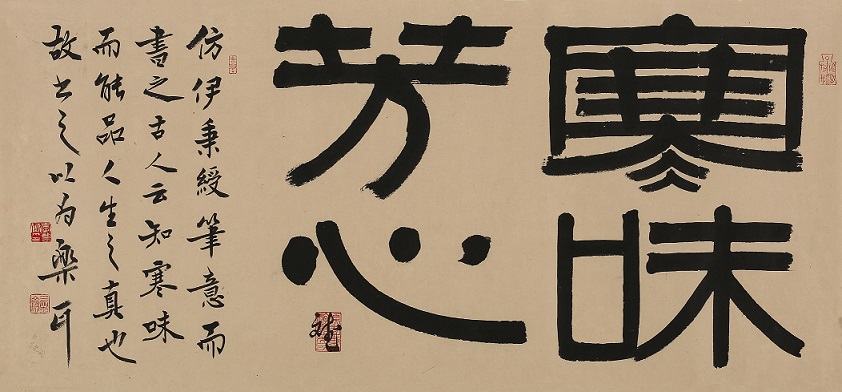 寒味
芳心
仿伊秉綬筆意而
書之古人云知寒味
而能品人生之真也
故書之以為樂耳